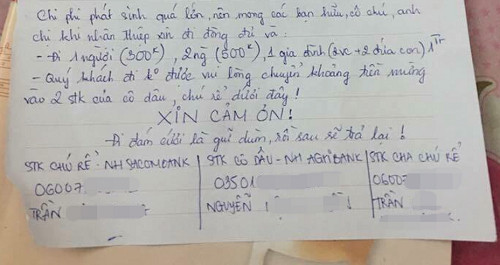 Chi phí phát sinh quá lớn, nên mong các bạn hữu, cô chú, anh
chị khi nhận thiệp xin đi đông đủ và:
- Đi 1 người (300k), 2 ng (500k), 1 gia đình (2vc + 2 đứa con) 1Tr
- Quý khách đi ko được vui lòng chuyển khoảng tiền mừng
vào 2 stk của cô dâu, chú rể dưới đây!
XIN CẢM ƠN!
Đi đám cưới là gửi dùm, rồi sau sẽ trả lại!
STK CHÚ RỂ: NH SACOMBANK
STK CÔ DÂU - NH AGRIBANK
STK CHA CHÚ RỂ
06007
03501
06007
TRẦN
NGUYỄN
TRẦN